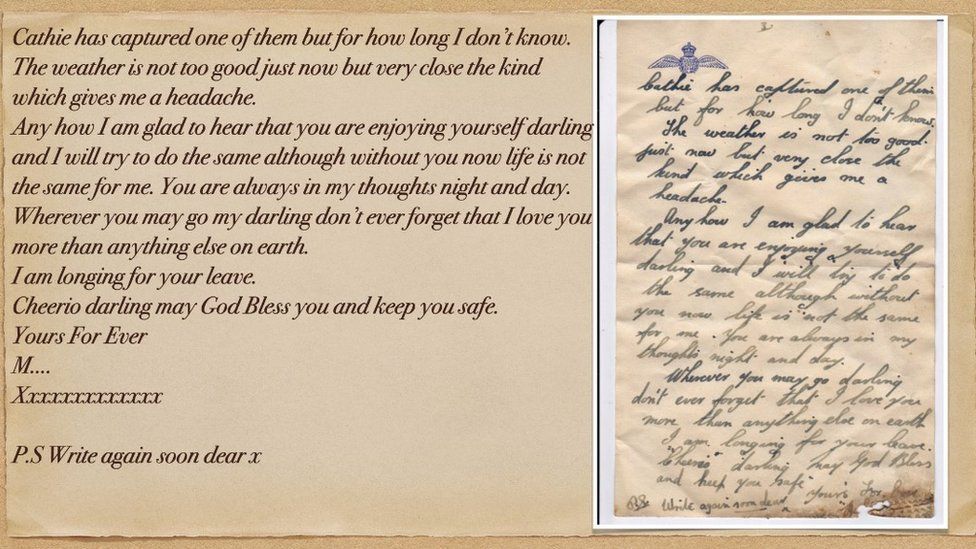 Cathie has captured one of them but for how long I don't know.
The weather is not too good just now but very close the kind
which gives me a headache.
Any how I am glad to hear that you are enjoying yourself darling
and I will try to do the same although without you now life is not
the same for me. You are always in my thoughts night and day.
Wherever you may go my darling don't ever forget that I love you
more than anything else on earth.
I am longing for your leave.
Cheerio darling may God Bless you and keep you safe.
Yours For Ever
M....
Xxxxxxxxxxxxxx
P.S Write again soon dear x
Cathie has captured one of them
but for how long I don't know.
The weather is not too good
just now but very close the
kind which gives me a
headache.
Any how I am glad to hear
that you are enjoying yourself
darling and I will try to do
the same although without
you now life is not the same
for me. You are always in my
thoughts night and day.
Wherever you may go darling
don't ever forget that I love you
more than anything else on earth
I am longing for your leave.
"Cheerio" darling may God Bless
and keep you safe
Yours For Ever
P.S. Write again soon dear